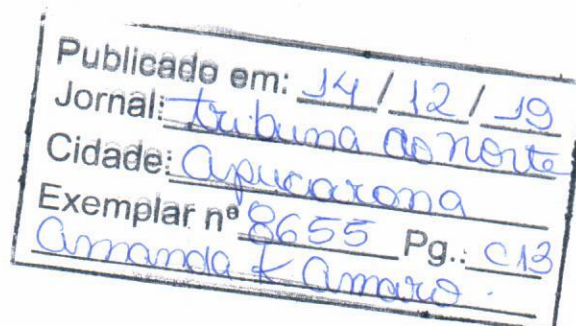 Publicado em: 14/12/19
Jornal: tribuna do norte
Cidade: Apucarana
Exemplar nº 8655 Pg.: C13
Amanda K Amaro.